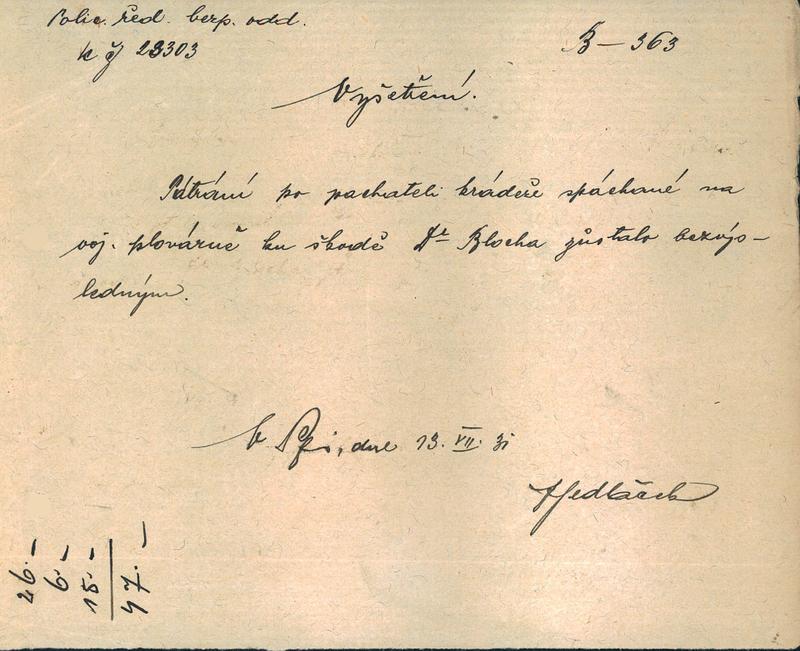 Polic. řed. bezp. odd.
k čj 23303
B – 363
Vyšetření.
Pátrání po pachateli krádeže spáchané na
voj. plovárně ku škodě Dr Blocha zůstalo bezvýs-
ledným.
V Pze, dne 13. VII. 31
Sedláček
26.–
6.–
15.–
47.–